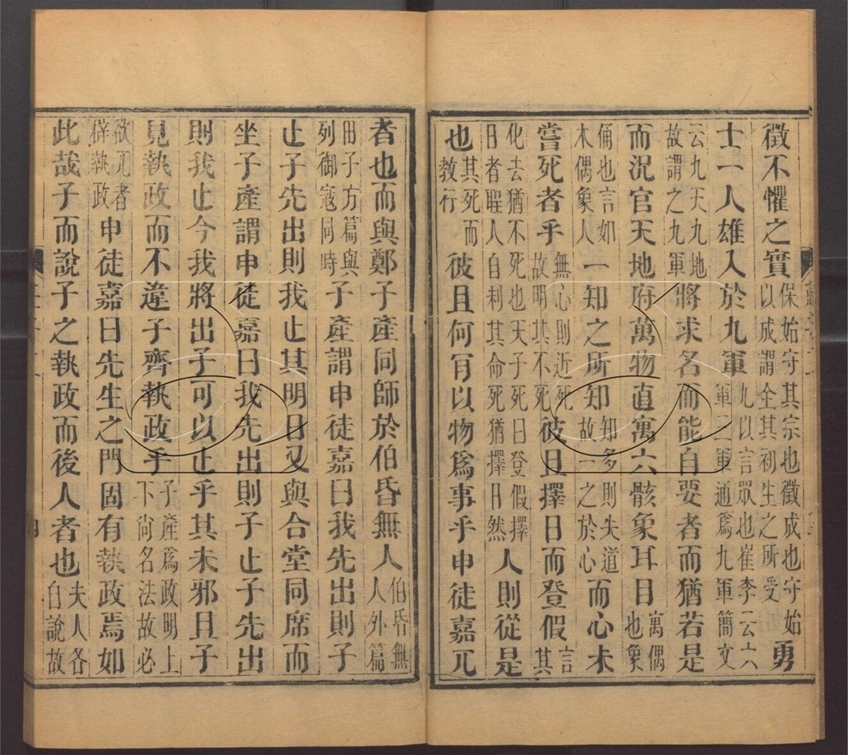 徵不懼之實保始守其宗也徵成也守始以成謂全其初生之所受勇
士一人雄入於九軍九以言眾也崔李云六軍三軍通爲九軍簡文
云九天九地故謂之九軍將求名而能自要者而猶若是
而況官天地府萬物直寓六骸象耳目寓偶也象
俑也言如木偶象人一知之所知知多則失道故一之於心而心未
嘗死者乎無心則近死故明其不死彼且擇日而登假言其
化去猶不死也天子死曰登假擇日者聖人自利其命死猶擇日然人則從是
也其死而教行彼且何肯以物爲事乎申徒嘉兀
者也而與鄭子產同師於伯昏無人伯昏無人外篇
田子方篇與列御寇同時子產謂申徒嘉曰我先出則子
止子先出則我止其明日又與合堂同席而
坐子產謂申徒嘉曰我先出則子止子先出
則我止今我將出子可以止乎其未邪且子
見執政而不違子齊執政乎子產爲政明上下尚名法故必
欲兀者僻執政申徒嘉曰先生之門固有執政焉如
此哉子而說子之執政而後人者也夫人各自說故